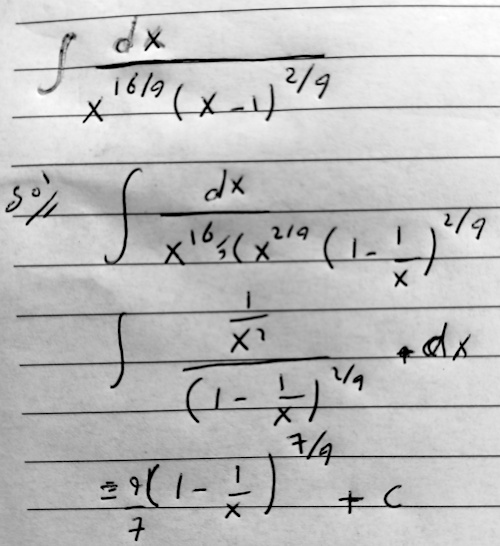 ∫ dx / x^{16/9} (x - 1)^{2/9}
Sol // ∫ dx / x^{16/9} (x^{2/9} (1 - 1/x)^{2/9}
∫ 1/x² / (1 - 1/x)^{2/9} . dx
= 9/7 (1 - 1/x)^{7/9} + c